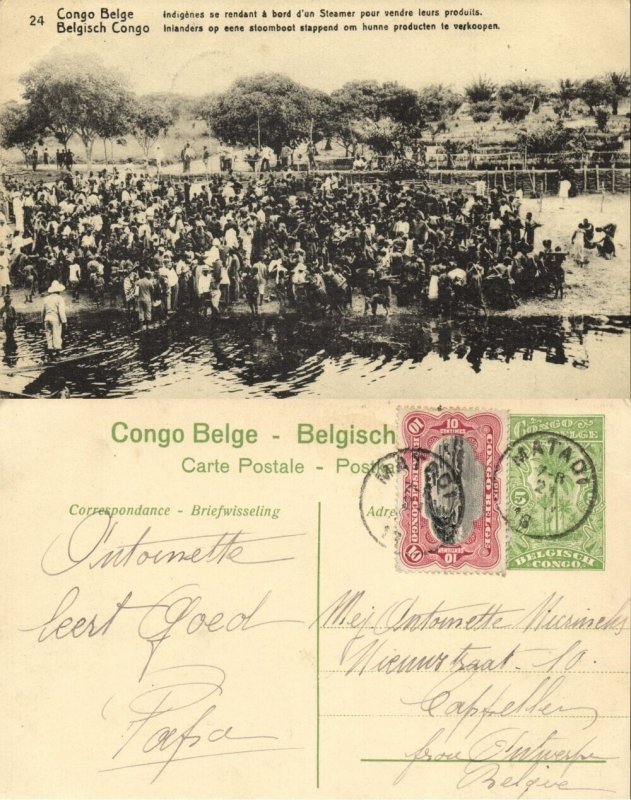 24 Congo Belge
Belgisch Congo
Indigènes se rendant à bord d'un Steamer pour vendre leurs produits.
Inlanders op eene stoomboot stappend om hunne producten te verkoopen.
Congo Belge - Belgisch
Carte Postale - Post
Correspondance - Briefwisseling
Adre
10 10
10 10
CONGO BELGE
5
BELGISCH
CONGO
MATADI
MATADI
Antoinette
leert Goed
Papa
Mej Antoinette
Nieuwstraat - 10.
Cappellen
Antwerpen
Belgique